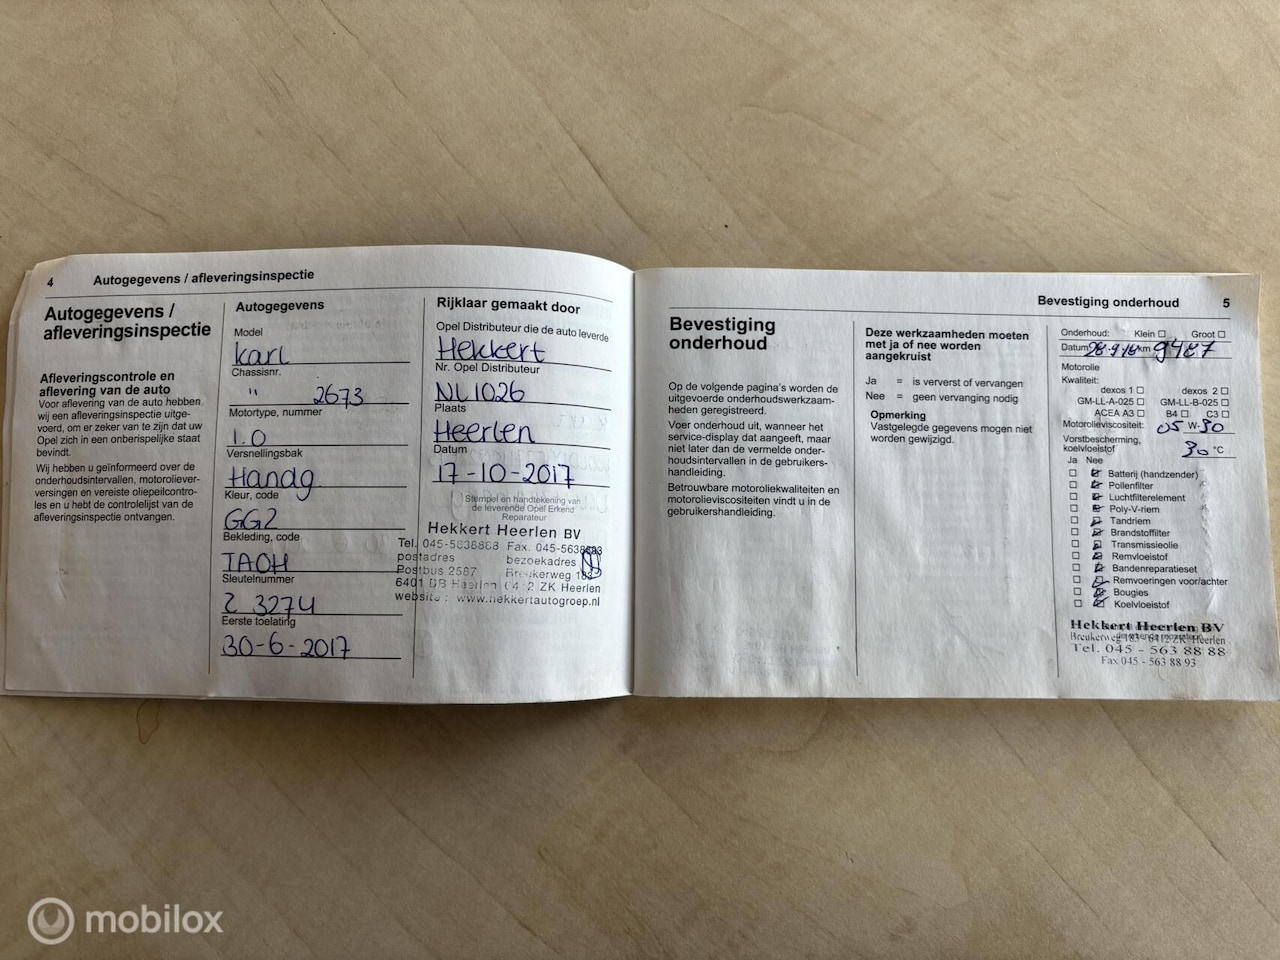 4 Autogegevens / afleveringsinspectie
Autogegevens /
afleveringsinspectie
Afleveringscontrole en
aflevering van de auto
Voor aflevering van de auto hebben
wij een afleveringsinspectie uitge-
voerd, om er zeker van te zijn dat uw
Opel zich in een onberispelijke staat
bevindt.
Wij hebben u geïnformeerd over de
onderhoudsintervallen, motoroliever-
versingen en vereiste oliepeilcontro-
les en u hebt de controlelijst van de
afleveringsinspectie ontvangen.
Autogegevens
Model
Karl
Chassisnr.
" 2673
Motortype, nummer
1.0
Versnellingsbak
Handg
Kleur, code
GG2
Bekleding, code
TAOH
Sleutelnummer
Z 3274
Eerste toelating
30-6-2017
Rijklaar gemaakt door
Opel Distributeur die de auto leverde
Hekkert
Nr. Opel Distributeur
NL1026
Plaats
Heerlen
Datum
17-10-2017
Stempel en handtekening van
de leverende Opel Erkend
Reparateur
Hekkert Heerlen BV
Tel. 045-5638888 Fax. 045-5638893
postadres bezoekadres
Postbus 2587 Breukerweg 183
6401 DB Heerlen 6412 ZK Heerlen
website : www.hekkertautogroep.nl
Bevestiging onderhoud 5
Bevestiging
onderhoud
Op de volgende pagina's worden de
uitgevoerde onderhoudswerkzaam-
heden geregistreerd.
Voer onderhoud uit, wanneer het
service-display dat aangeeft, maar
niet later dan de vermelde onder-
houdsintervallen in de gebruikers-
handleiding.
Betrouwbare motoroliekwaliteiten en
motorolieviscositeiten vindt u in de
gebruikershandleiding.
Deze werkzaamheden moeten
met ja of nee worden
aangekruist
Ja = is ververst of vervangen
Nee = geen vervanging nodig
Opmerking
Vastgelegde gegevens mogen niet
worden gewijzigd.
Onderhoud: Klein Groot
Datum km 9487
Motorolie
Kwaliteit:
dexos 1 dexos 2
GM-LL-A-025 GM-LL-B-025
ACEA A3 B4 C3
Motorolieviscositeit: 05 W-30
Vorstbescherming,
koelvloeistof 30 °C
Ja Nee
Batterij (handzender)
Pollenfilter
Luchtfilterelement
Poly-V-riem
Tandriem
Brandstoffilter
Transmissieolie
Remvloeistof
Bandenreparatieset
Remvoeringen voor/achter
Bougies
Koelvloeistof
Hekkert Heerlen BV
Breukerweg 183 - 6412 ZK Heerlen
Tel. 045 - 563 88 88
Fax 045 - 563 88 93
mobilox